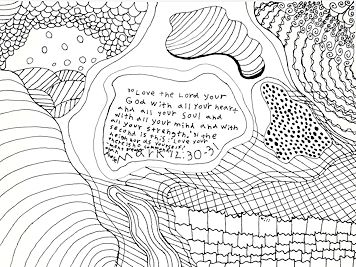 30 Love the Lord your
God with all your heart
and all your soul and
with all your mind and with
all your strength. 31 the
second is this: Love your
as yourself.
Mark 12:30-3